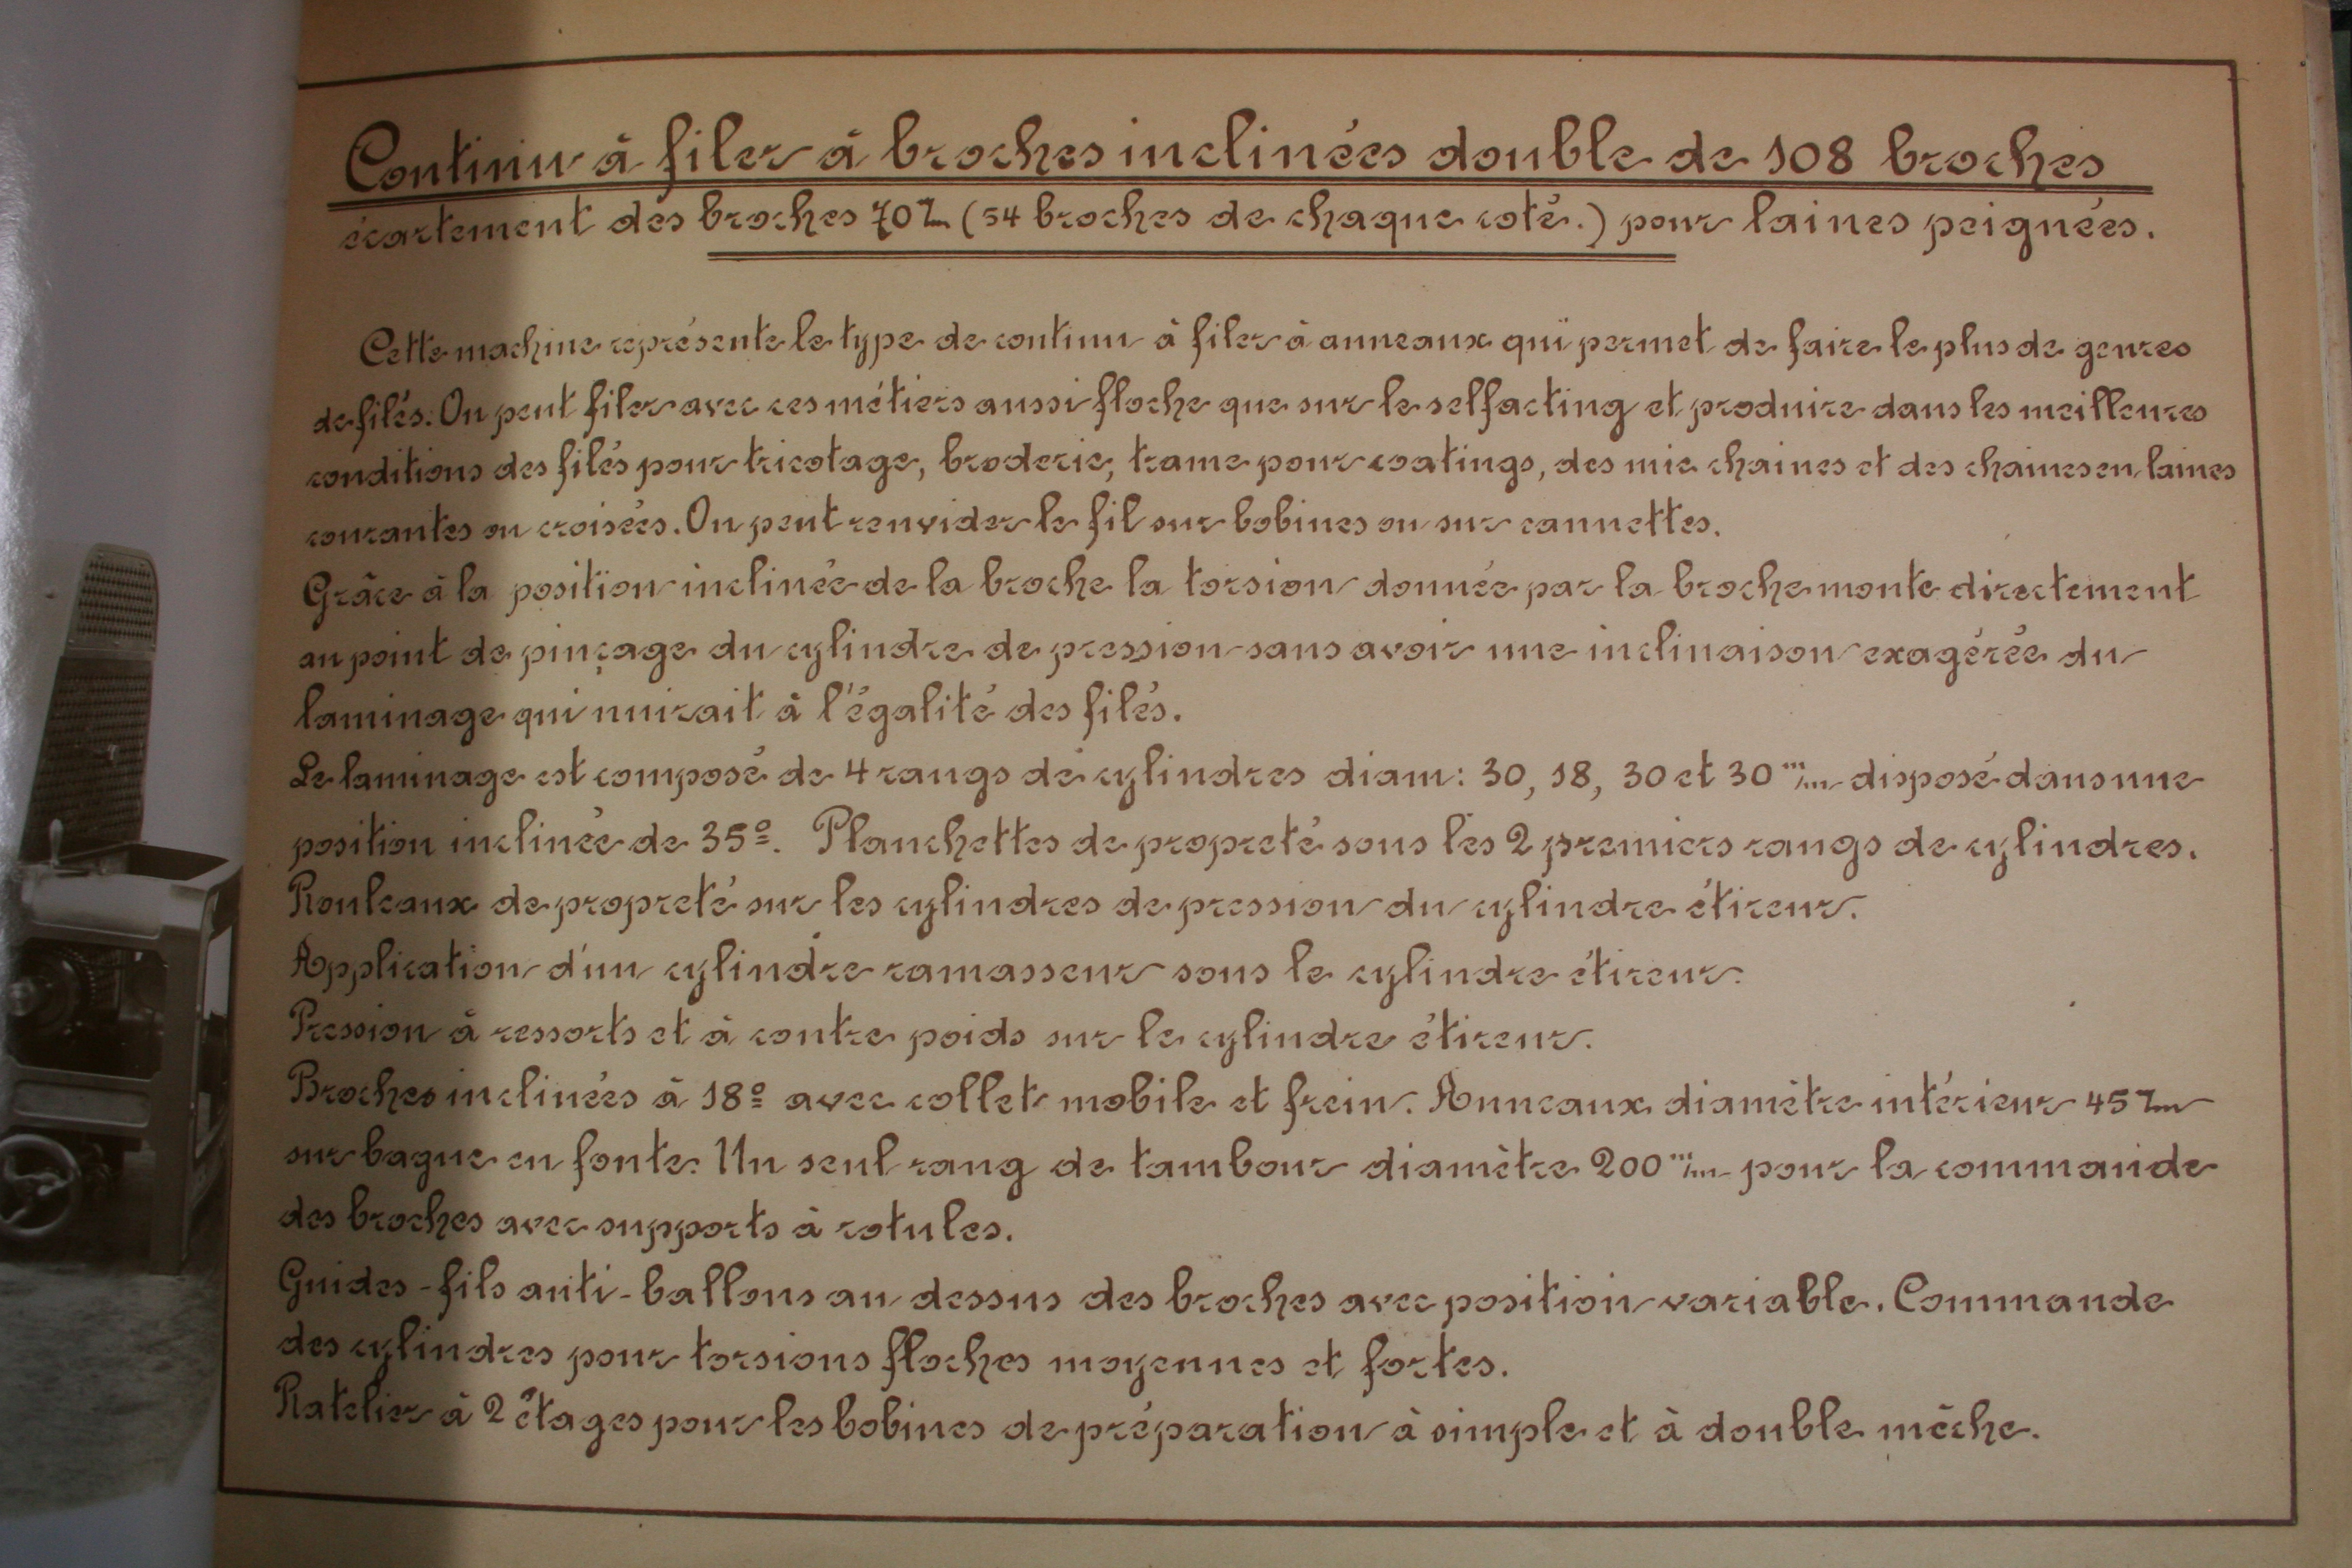 Continu à filer à broches inclinées double de 108 broches
écartement des broches 70 m/m (54 broches de chaque coté.) pour laines peignées.
Cette machine représente le type de continu à filer à anneaux qui permet de faire le plus de genres
de filés. On peut filer avec ces métiers aussi floche que sur le selfacting et produire dans les meilleures
conditions des filés pour tricotage, broderie, trame pour coatings, des mie chaines et des chaines en laines
courantes ou croisées. On peut renvider le fil sur bobines ou sur cannettes.
Grâce à la position inclinée de la broche la torsion donnée par la broche monte directement
au point de pinçage du cylindre de pression sans avoir une inclinaison exagérée du
laminage qui nuirait à l'égalité des filés.
Le laminage est composé de 4 rangs de cylindres diam: 30, 18, 30 et 30 m/m disposé dans une
position inclinée de 35º. Planchettes de propreté sous les 2 premiers rangs de cylindres.
Rouleaux de propreté sur les cylindres de pression du cylindre étireur.
Application d'un cylindre ramasseur sous le cylindre étireur.
Pression à ressorts et à contre poids sur le cylindre étireur.
Broches inclinées à 18º avec collet mobile et frein. Anneaux diamètre intérieur 45 m/m
sur bague en fonte. Un seul rang de tambour diamètre 200 m/m pour la commande
des broches avec supports à rotules.
Guides-fils anti-ballons au dessus des broches avec position variable. Commande
des cylindres pour torsions floches moyennes et fortes.
Ratelier à 2 étages pour les bobines de préparation à simple et à double mèche.